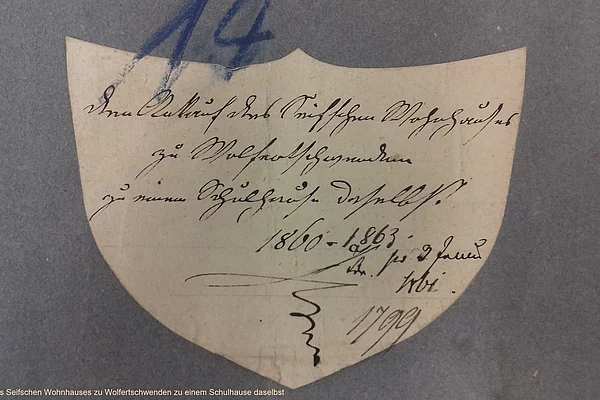 14
den Ankauf des Seifschen Wohnhauses
zu Wolfertschwenden
zu einem Schulhause daselbst.
1860-1863.
1799
s Seifschen Wohnhauses zu Wolfertschwenden zu einem Schulhause daselbst